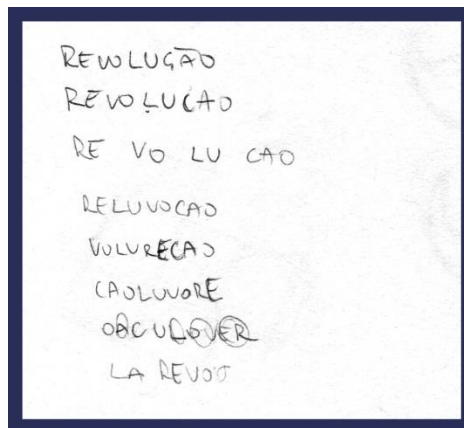 REVOLUÇÃO
REVOLUCAO
RE VO LU CAO
RELUVOCAO
VOLURECAO
CAOLUVORE
OACULOVER
LA REVOO